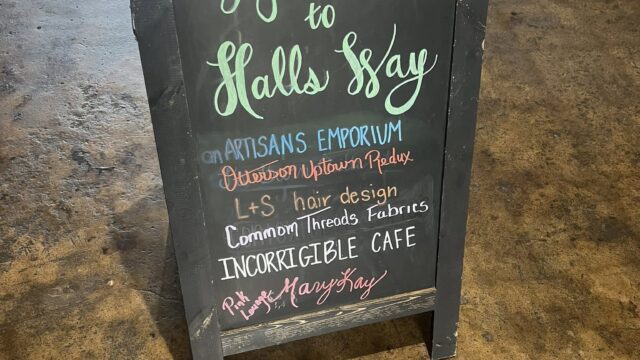 to
Halls Way
an ARTISANS EMPORIUM
Otterson Uptown Redux
L+S hair design
Common Threads Fabrics
INCORRIGIBLE CAFE
Pink Lounge Mary Kay